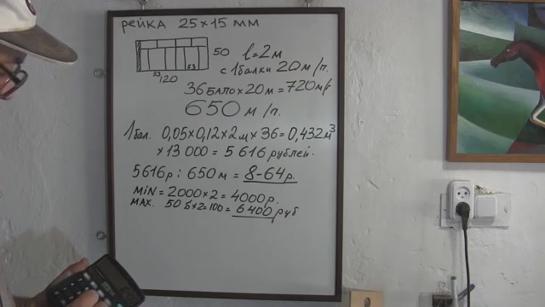 рейка 25×15 мм
50
120
l=2м
с 1балки 20 м/п.
36 БАЛО × 20м = 720м/п
650 м/п.
1 бал. 0,05×0,12×2м×36=0,432м³
×13 000 = 5 616 рублей.
5616р : 650 м = 8-64р.
MiN = 2000×2 = 4000р.
МАХ. 50 б×2=100= 6400 руб